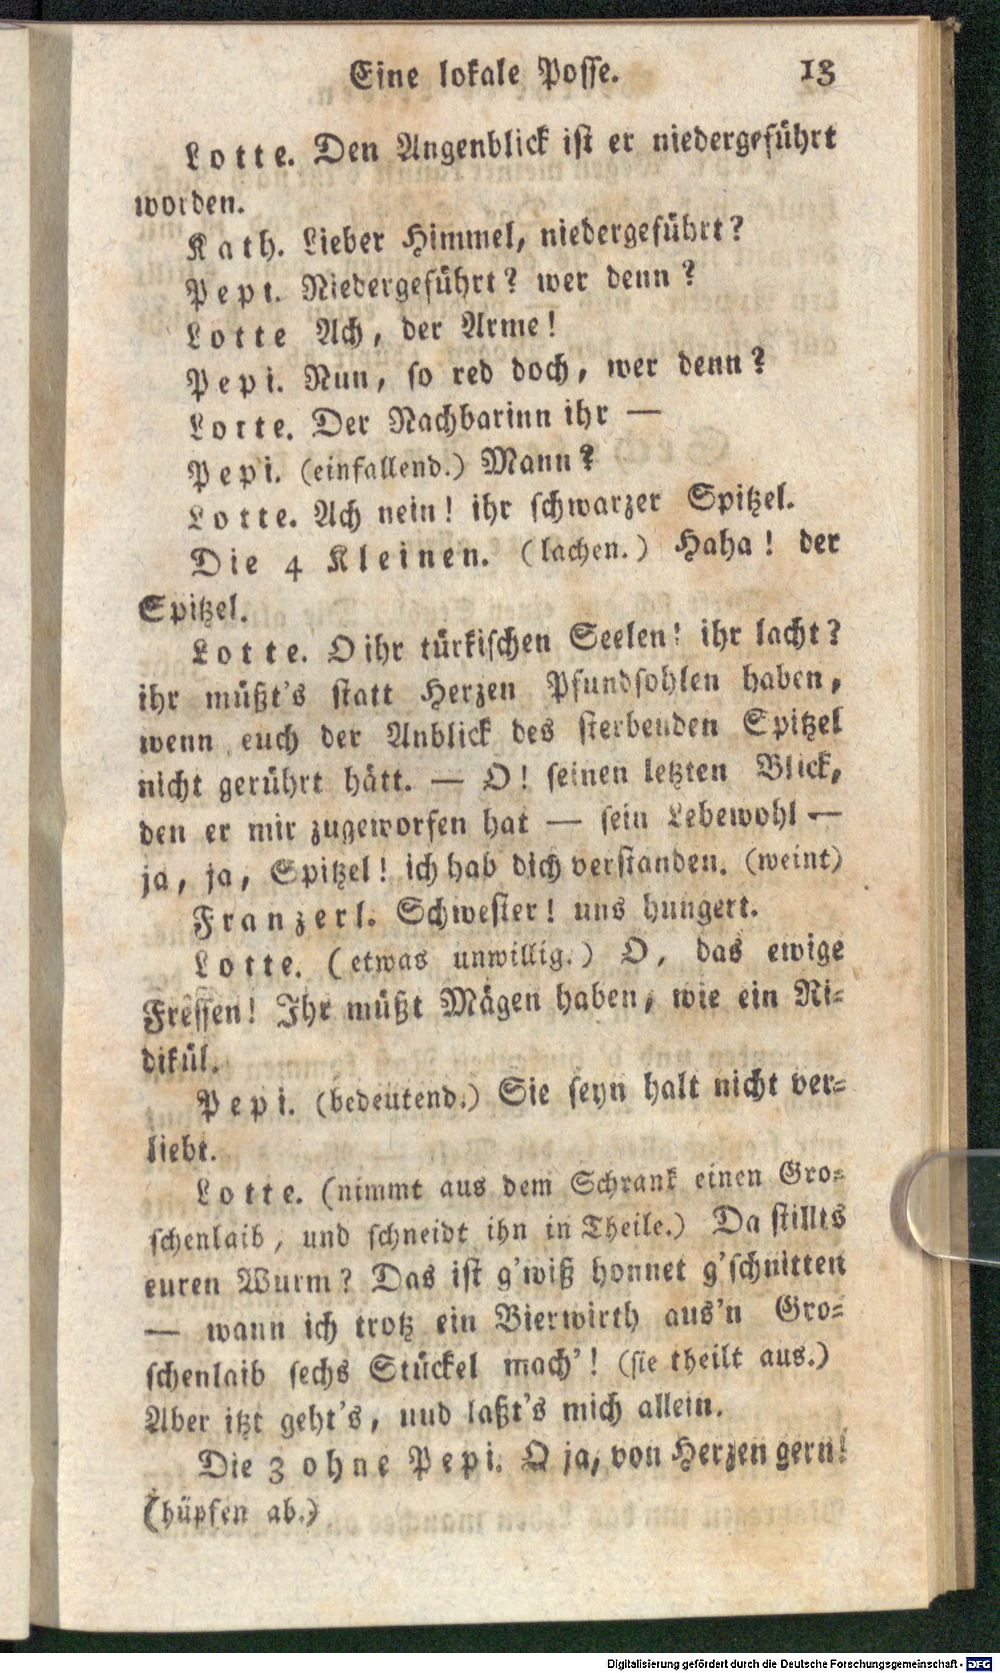 Eine lokale Posse. 13
Lotte. Den Angenblick ist er niedergeführt
worden.
Kath. Lieber Himmel, niedergeführt?
Pepi. Niedergeführt? wer denn?
Lotte Ach, der Arme!
Pepi. Nun, so red doch, wer denn?
Lotte. Der Nachbarinn ihr —
Pepi. (einfallend.) Mann?
Lotte. Ach nein! ihr schwarzer Spitzel.
Die 4 Kleinen. (lachen.) Haha! der
Spitzel.
Lotte. O ihr türkischen Seelen! ihr lacht?
ihr müßt's statt Herzen Pfundsohlen haben,
wenn euch der Anblick des sterbenden Spitzel
nicht gerührt hätt. — O! seinen letzten Blick,
den er mir zugeworfen hat — sein Lebewohl —
ja, ja, Spitzel! ich hab dich verstanden. (weint)
Franzerl. Schwester! uns hungert.
Lotte. (etwas unwillig.) O, das ewige
Fressen! Ihr müßt Mägen haben, wie ein Ri-
dikül.
Pepi. (bedeutend.) Sie seyn halt nicht ver-
liebt.
Lotte. (nimmt aus dem Schrank einen Gro-
schenlaib, und schneidt ihn in Theile.) Da stillts
euren Wurm? Das ist g'wiß honnet g'schnitten
— wann ich trotz ein Bierwirth aus'n Gro-
schenlaib sechs Stückel mach'! (sie theilt aus.)
Aber itzt geht's, und laßt's mich allein.
Die 3 ohne Pepi. O ja, von Herzen gern!
(hüpfen ab.)
Digitalisierung gefördert durch die Deutsche Forschungsgemeinschaft - DFG